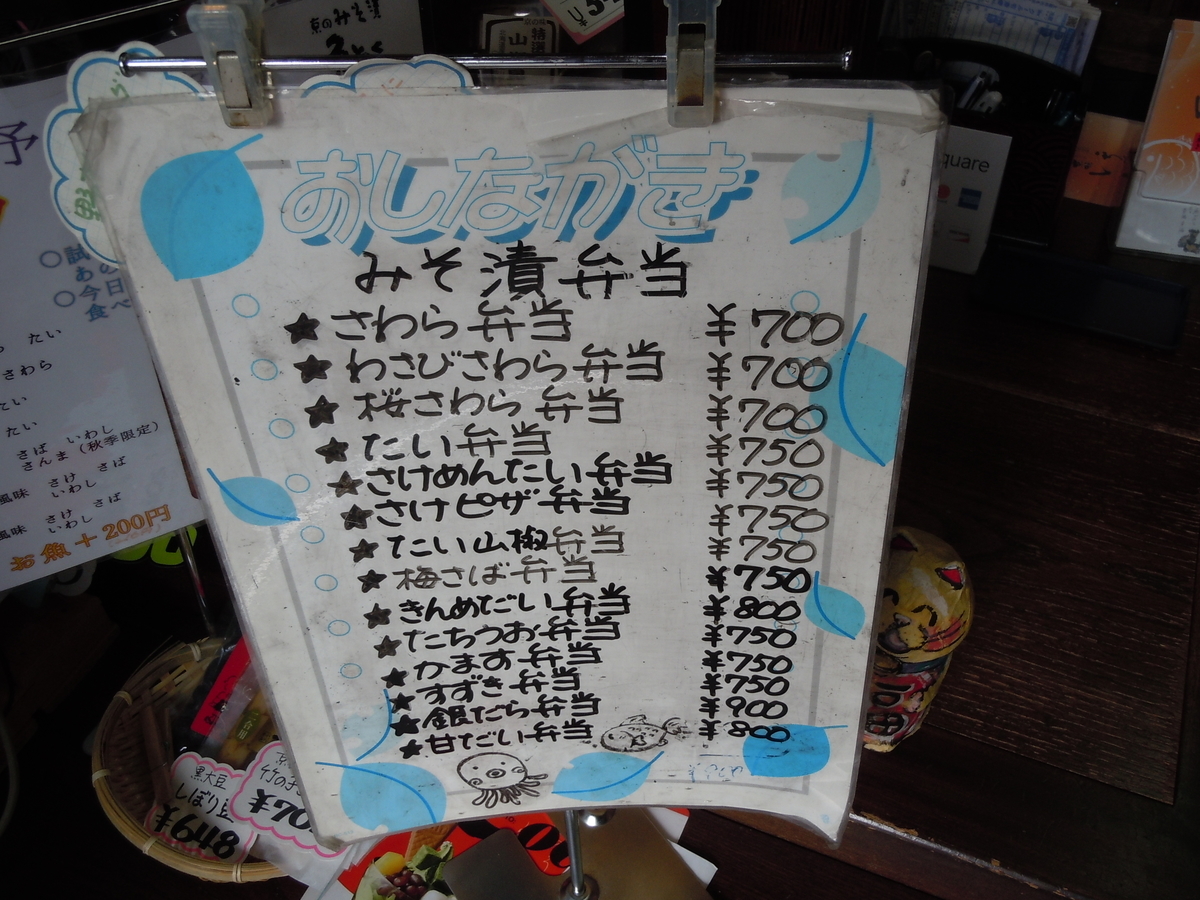 おしながき
みそ漬弁当
★ さわら弁当 ¥700
★ わさびさわら弁当 ¥700
★ 桜さわら弁当 ¥700
★ たい弁当 ¥750
★ さけめんたい弁当 ¥750
★ さけピザ弁当 ¥750
★ たい山椒弁当 ¥750
★ 梅さば弁当 ¥750
★ きんめだい弁当 ¥800
★ たちうお弁当 ¥750
★ かます弁当 ¥750
★ すずき弁当 ¥750
★ 銀だら弁当 ¥900
★ 甘だい弁当 ¥800
予
○試
あの
○今日
食べ
たい
さわら
たい
たい
さば いわし
さんま(秋季限定)
風味 さけ さば
いわし
風味 さけ さば
いわし
お魚+200円
京のみそ漬
特選
山
quare
黒大豆
しぼり豆
¥648
竹の子